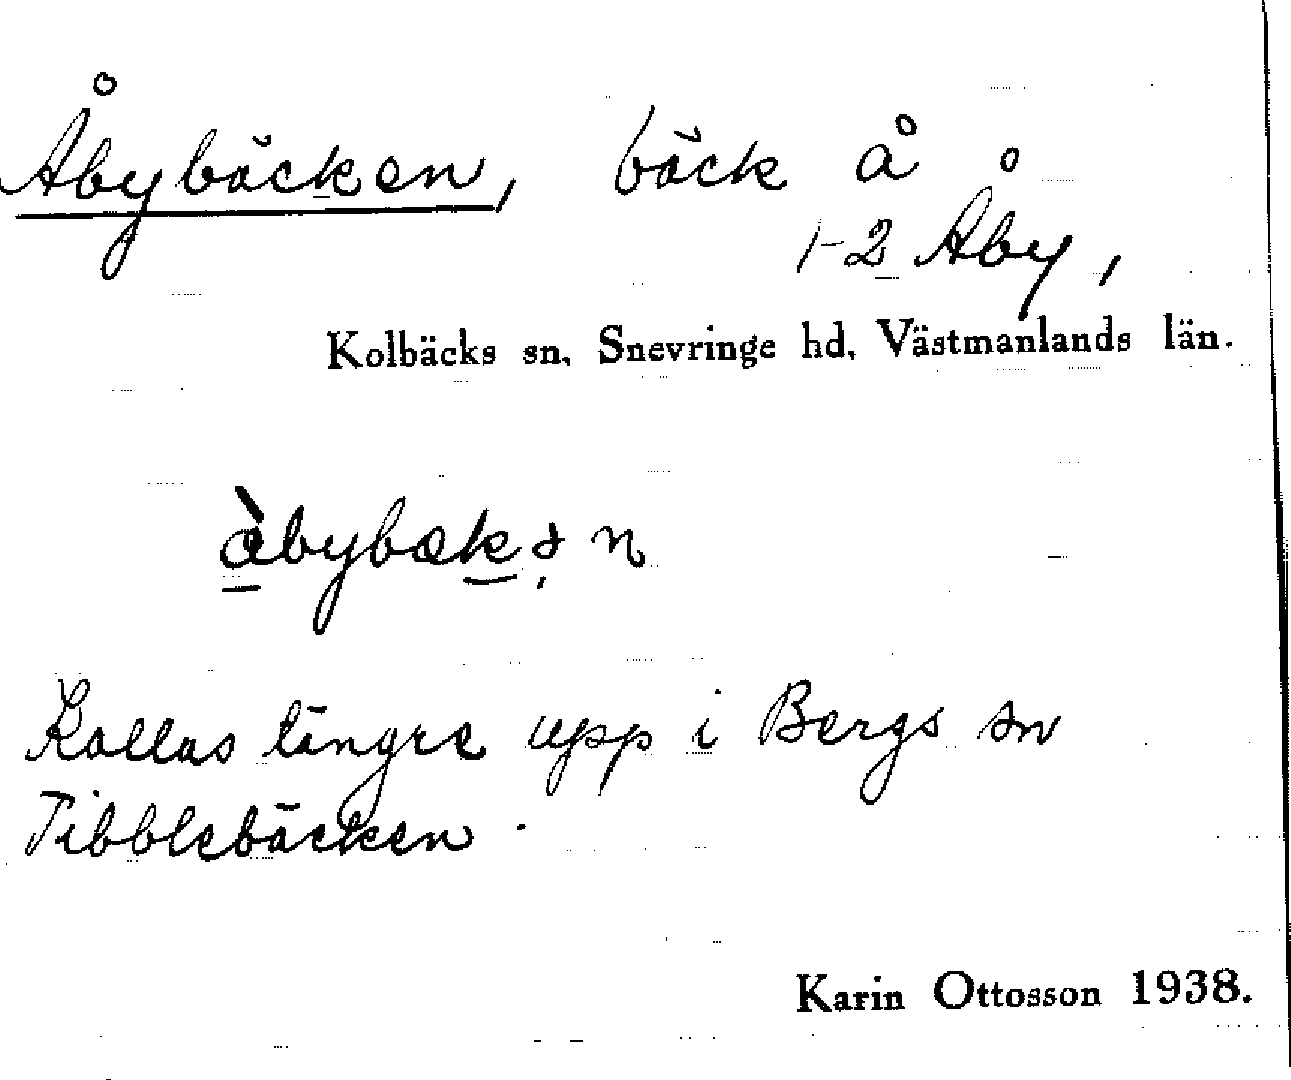 Åbybäcken, bäck å
1-2 Åby,
Kolbäcks sn, Snevringe hd, Västmanlands län.
àbybækən
Kallas längre upp i Bergs sn
Tibblebäcken.
Karin Ottosson 1938.